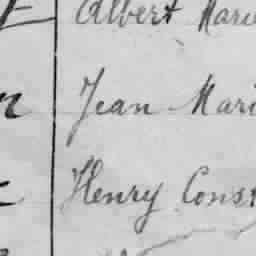 Albert Mari
Jean Mari
Henry Const